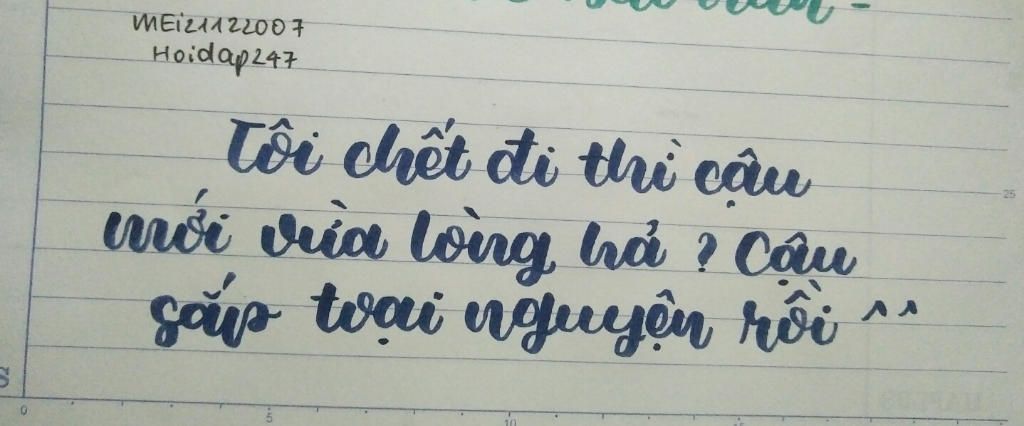 MEi21122007
Hoidap247
Tôi chết đi thì cậu
mới vừa lòng hả ? Cậu
sắp toại nguyện rồi ^^
25
S
0
5
10